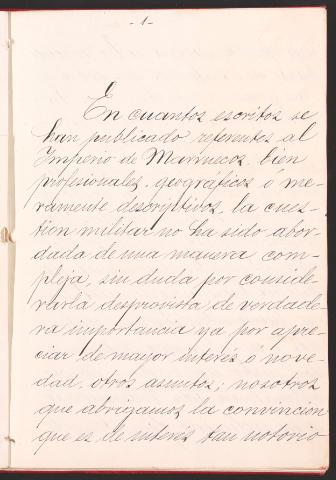 -1-
En cuantos escritos se
han publicado referentes al
Imperio de Marruecos, bien
profesionales, geográficos ó me-
ramente descriptivos, la cues-
tion militar no ha sido abor-
dada de una manera com-
pleja, sin duda por conside-
rarla desprovista de verdade-
ra importancia ya por apre-
ciar de mayor interés ó nove-
dad, otros asuntos; nosotros
que abrigamos la conviccion
que es de interés tan notorio